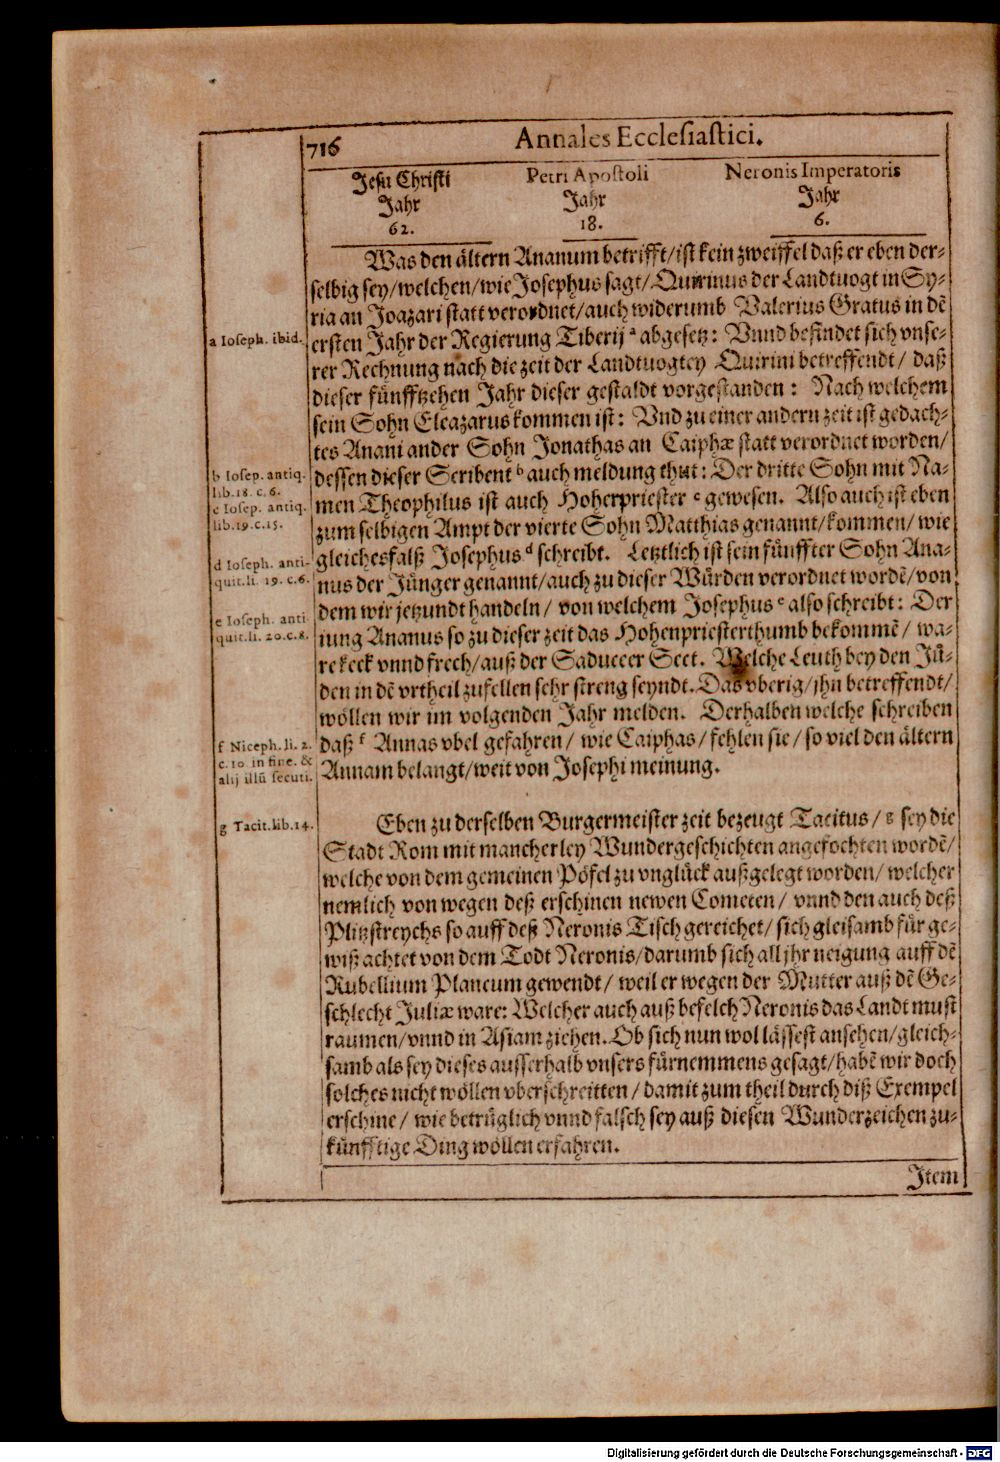 716
Annales Ecclesiastici.
Jesu Christi
Jahr
62.
Petri Apostoli
Jahr
18.
Neronis Imperatoris
Jahr
6.
Was den ältern Ananum betrifft/ist kein zweiffel daß er eben der-
selbig sey/welchen/wie Josephus sagt/Quirinus der Landtuogt in Sy-
ria an Joazari statt verordnet/auch widerumb Valerius Gratus in dẽ
ersten Jahr der Regierung Tiberij ᵃ abgesetz: Vnnd befindet sich vnse-
rer Rechnung nach die zeit der Landtuogtey Quirini betreffendt/ daß
dieser fünfftzehen Jahr dieser gestaldt vorgestanden: Nach welchem
sein Sohn Eleazarus kommen ist: Vnd zu einer andern zeit ist gedach-
tes Anani ander Sohn Jonathas an Caiphæ statt verordnet worden/
dessen dieser Scribent ᵇ auch meldung thut: Der dritte Sohn mit Na-
men Theophilus ist auch Hoherpriester ᶜ gewesen. Also auch ist eben
zum selbigen Ampt der vierte Sohn Matthias genannt/kommen/ wie
gleichesfalß Josephus ᵈ schreibt. Letztlich ist sein fünffter Sohn Ana-
nus der Jünger genannt/auch zu dieser Würden verordnet wordẽ/von
dem wir jetzundt handeln/ von welchem Josephus ᵉ also schreibt: Der
iung Ananus so zu dieser zeit das Hohenpriesterthumb bekommẽ/ wa-
re keck vnnd frech/auß der Saduceer Sect. Welche Leuth bey den Jü-
den in dẽ vrtheil zufellen sehr streng seyndt. Das vberig/jhn betreffendt/
wöllen wir im volgenden Jahr melden. Derhalben welche schreiben
daß ᶠ Annas vbel gefahren/ wie Caiphas/fehlen sie/so viel den ältern
Annam belangt/weit von Josephi meinung.
a Ioseph. ibid.
b Iosep. antiq.
lib. 18. c. 6.
c Iosep. antiq.
lib. 19. c. 15.
d Ioseph. anti-
quit. li. 19. c. 6.
e Ioseph. anti
quit. li. 20. c. 8.
f Niceph. li. 2.
c. 10. in fine. &
alij illũ secuti.
g Tacit. lib. 14.
Eben zu derselben Burgermeister zeit bezeugt Tacitus/ ᵍ sey die
Stadt Rom mit mancherley Wundergeschichten angefochten wordẽ/
welche von dem gemeinen Pöfel zu vnglück außgelegt worden/ welcher
nemlich von wegen deß erschinen newen Cometen/ vnnd den auch deß
Plitzstreychs so auff deß Neronis Tisch gereichet/ sich gleisamb für ge-
wiß achtet von dem Todt Neronis/darumb sich all jhr neigung auff dẽ
Rubellium Plancum gewendt/ weil er wegen der Mutter auß dẽ Ge-
schlecht Juliæ ware: Welcher auch auß befelch Neronis das Landt must
raumen/vnnd in Asiam ziehen. Ob sich nun wol lässest ansehen/gleich-
samb als sey dieses ausserhalb vnsers fürnemmens gesagt/habẽ wir doch
solches nicht wöllen vberschreitten/ damit zum theil durch diß Exempel
erschine/ wie betrüglich vnnd falsch sey auß diesen Wunderzeichen zu-
künfftige Ding wöllen erfahren.
Item
Digitalisierung gefördert durch die Deutsche Forschungsgemeinschaft - DFG